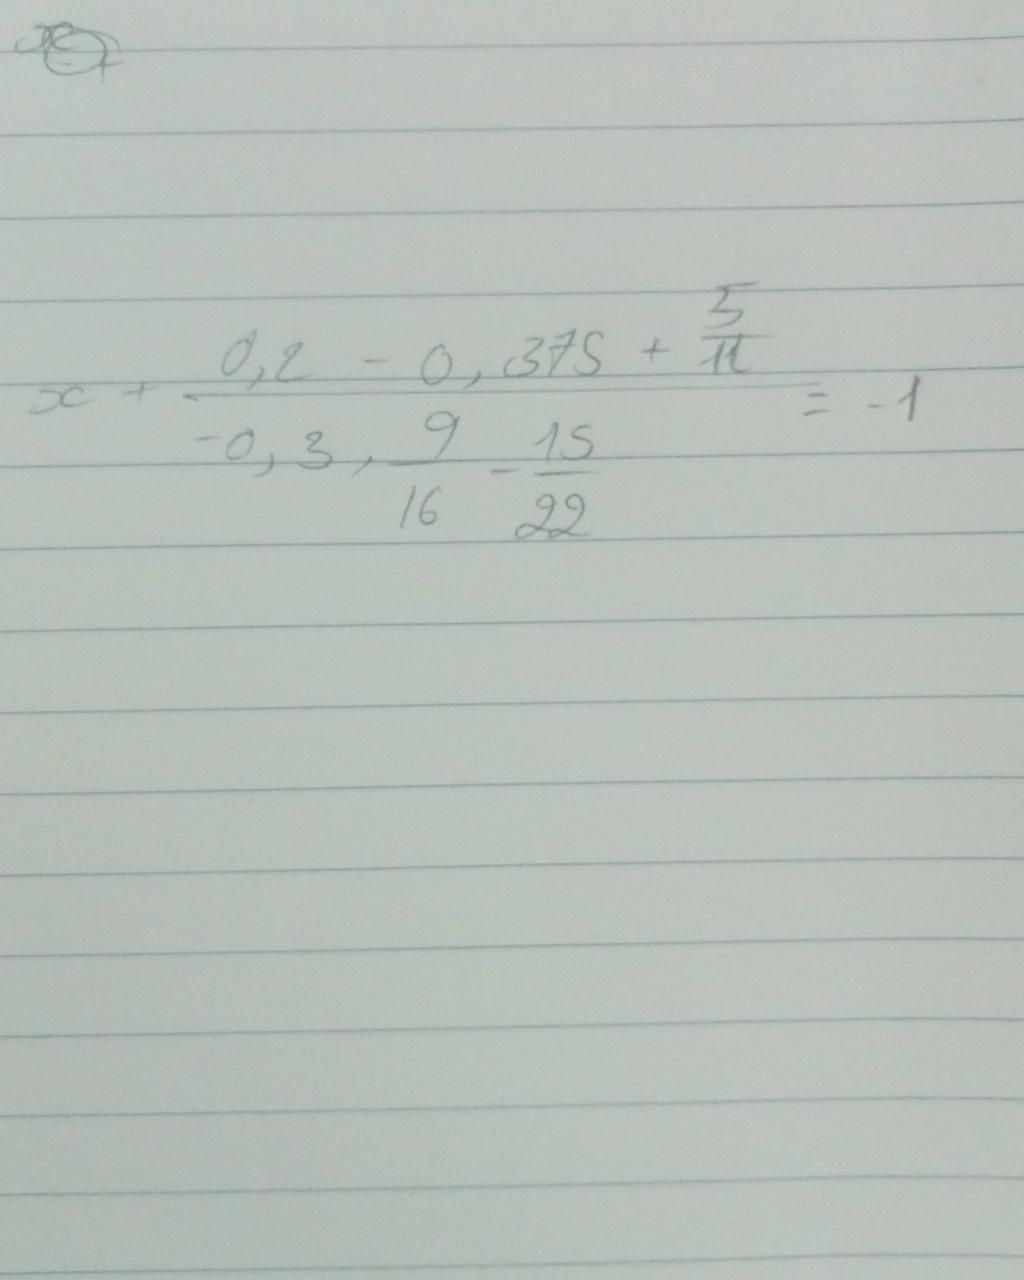 x + \frac{0,2 - 0,375 + \frac{5}{11}}{-0,3, \frac{9}{16} - \frac{15}{22}} = -1